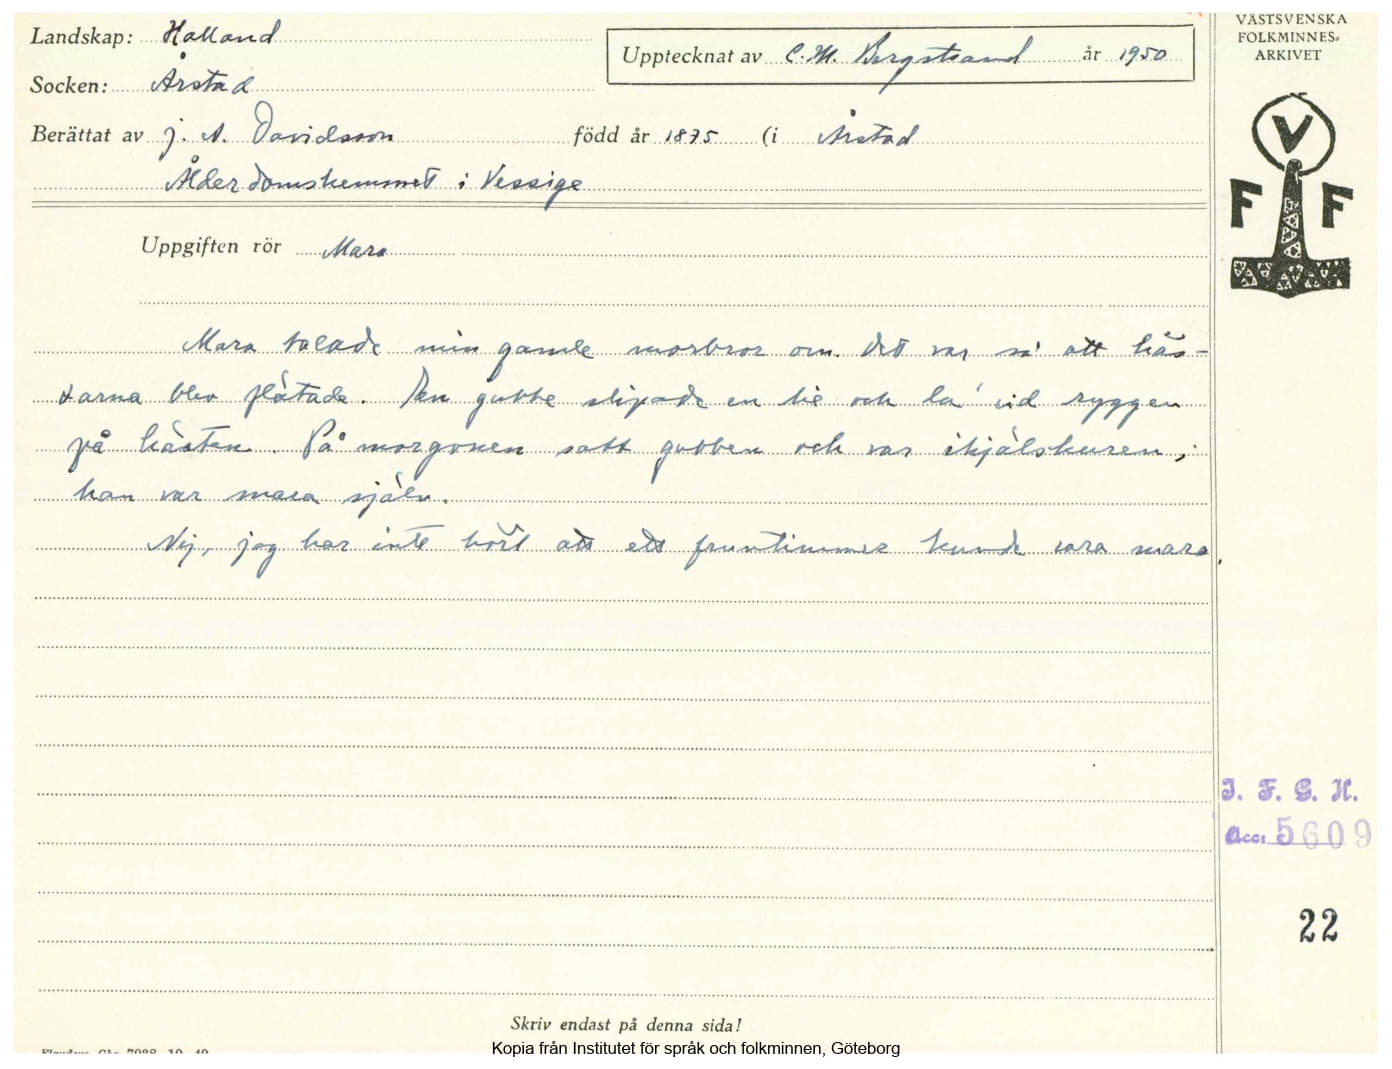 Landskap: Halland
Upptecknat av C. M. Bergstrand år 1950
VÄSTSVENSKA
FOLKMINNES-
ARKIVET
Socken: Årstad
Berättat av J. A. Davidsson född år 1875 (i Årstad
Ålderdomshemmet i Vessige
V
F F
Uppgiften rör Mara
Mara talade min gamle morbror om. Det var så att häs-
tarna blev flätade. En gubbe slipade en lie och la' vid ryggen
på hästen. På morgonen satt gubben och var ihjälskuren;
han var mara själv.
Nej, jag har inte hört att ett fruntimmer kunde vara mara.
I. F. G. H.
Acc: 5609
22
Skriv endast på denna sida!
Kopia från Institutet för språk och folkminnen, Göteborg